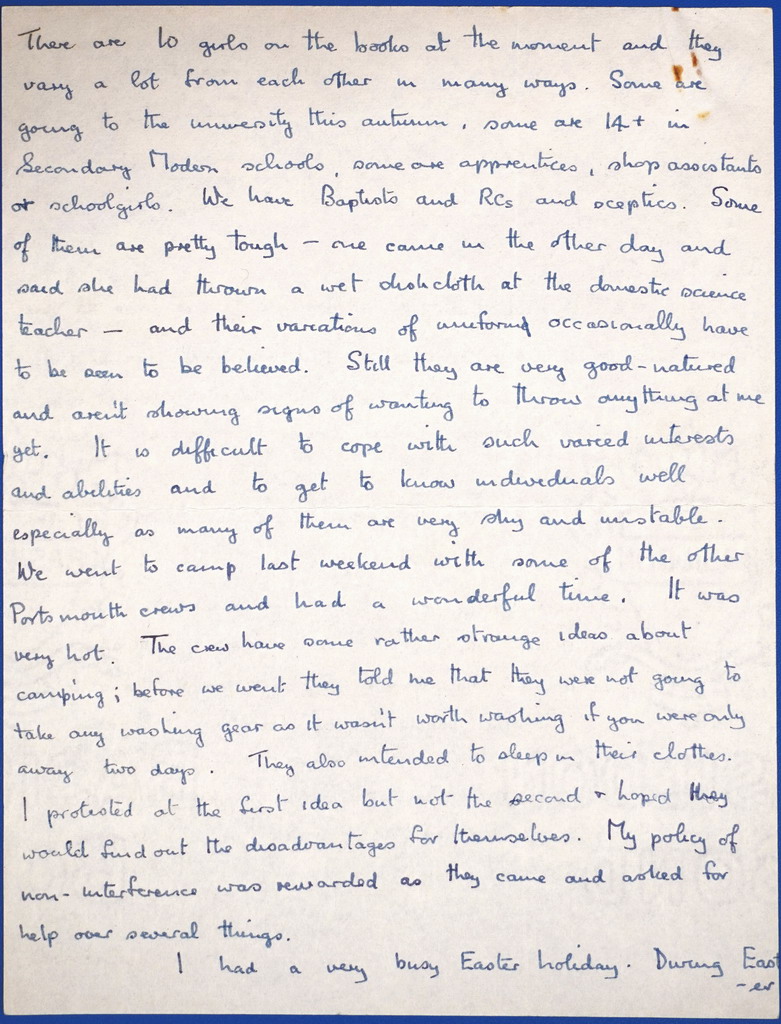 There are 10 girls on the books at the moment and they
vary a lot from each other in many ways. Some are
going to the university this autumn, some are 14+ in
Secondary Modern schools, some are apprentices, shop assistants
or schoolgirls. We have Baptists and RCs and sceptics. Some
of them are pretty tough – one came in the other day and
said she had thrown a wet dishcloth at the domestic science
teacher – and their variations of uniform occasionally have
to be seen to be believed. Still they are very good-natured
and aren't showing signs of wanting to throw anything at me
yet. It is difficult to cope with such varied interests
and abilities and to get to know individuals well
especially as many of them are very shy and unstable.
We went to camp last weekend with some of the other
Portsmouth crews and had a wonderful time. It was
very hot. The crew have some rather strange ideas about
camping; before we went they told me that they were not going to
take any washing gear as it wasn't worth washing if you were only
away two days. They also intended to sleep in their clothes.
I protested at the first idea but not the second & hoped they
would find out the disadvantages for themselves. My policy of
non-interference was rewarded as they came and asked for
help over several things.
I had a very busy Easter holiday. During East
-er